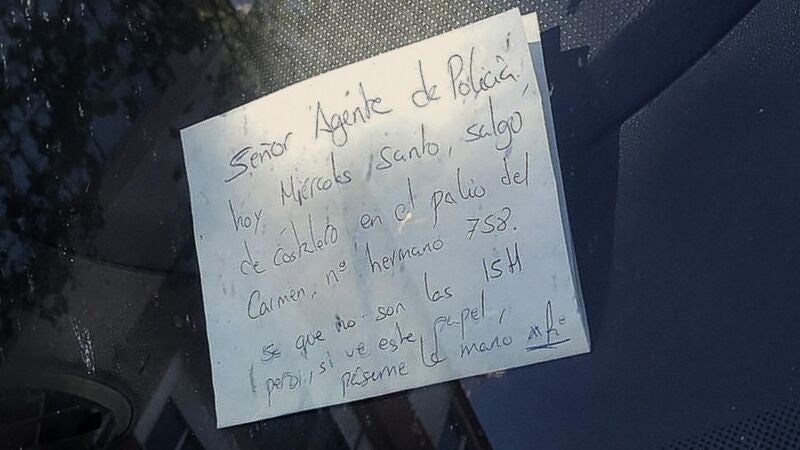 Señor Agente de Policía,
hoy Miércoles Santo, salgo
de costalero en el palio del
Carmen, nº hermano 758.
Se que no son las 15H
pero, si ve este papel,
páseme la mano